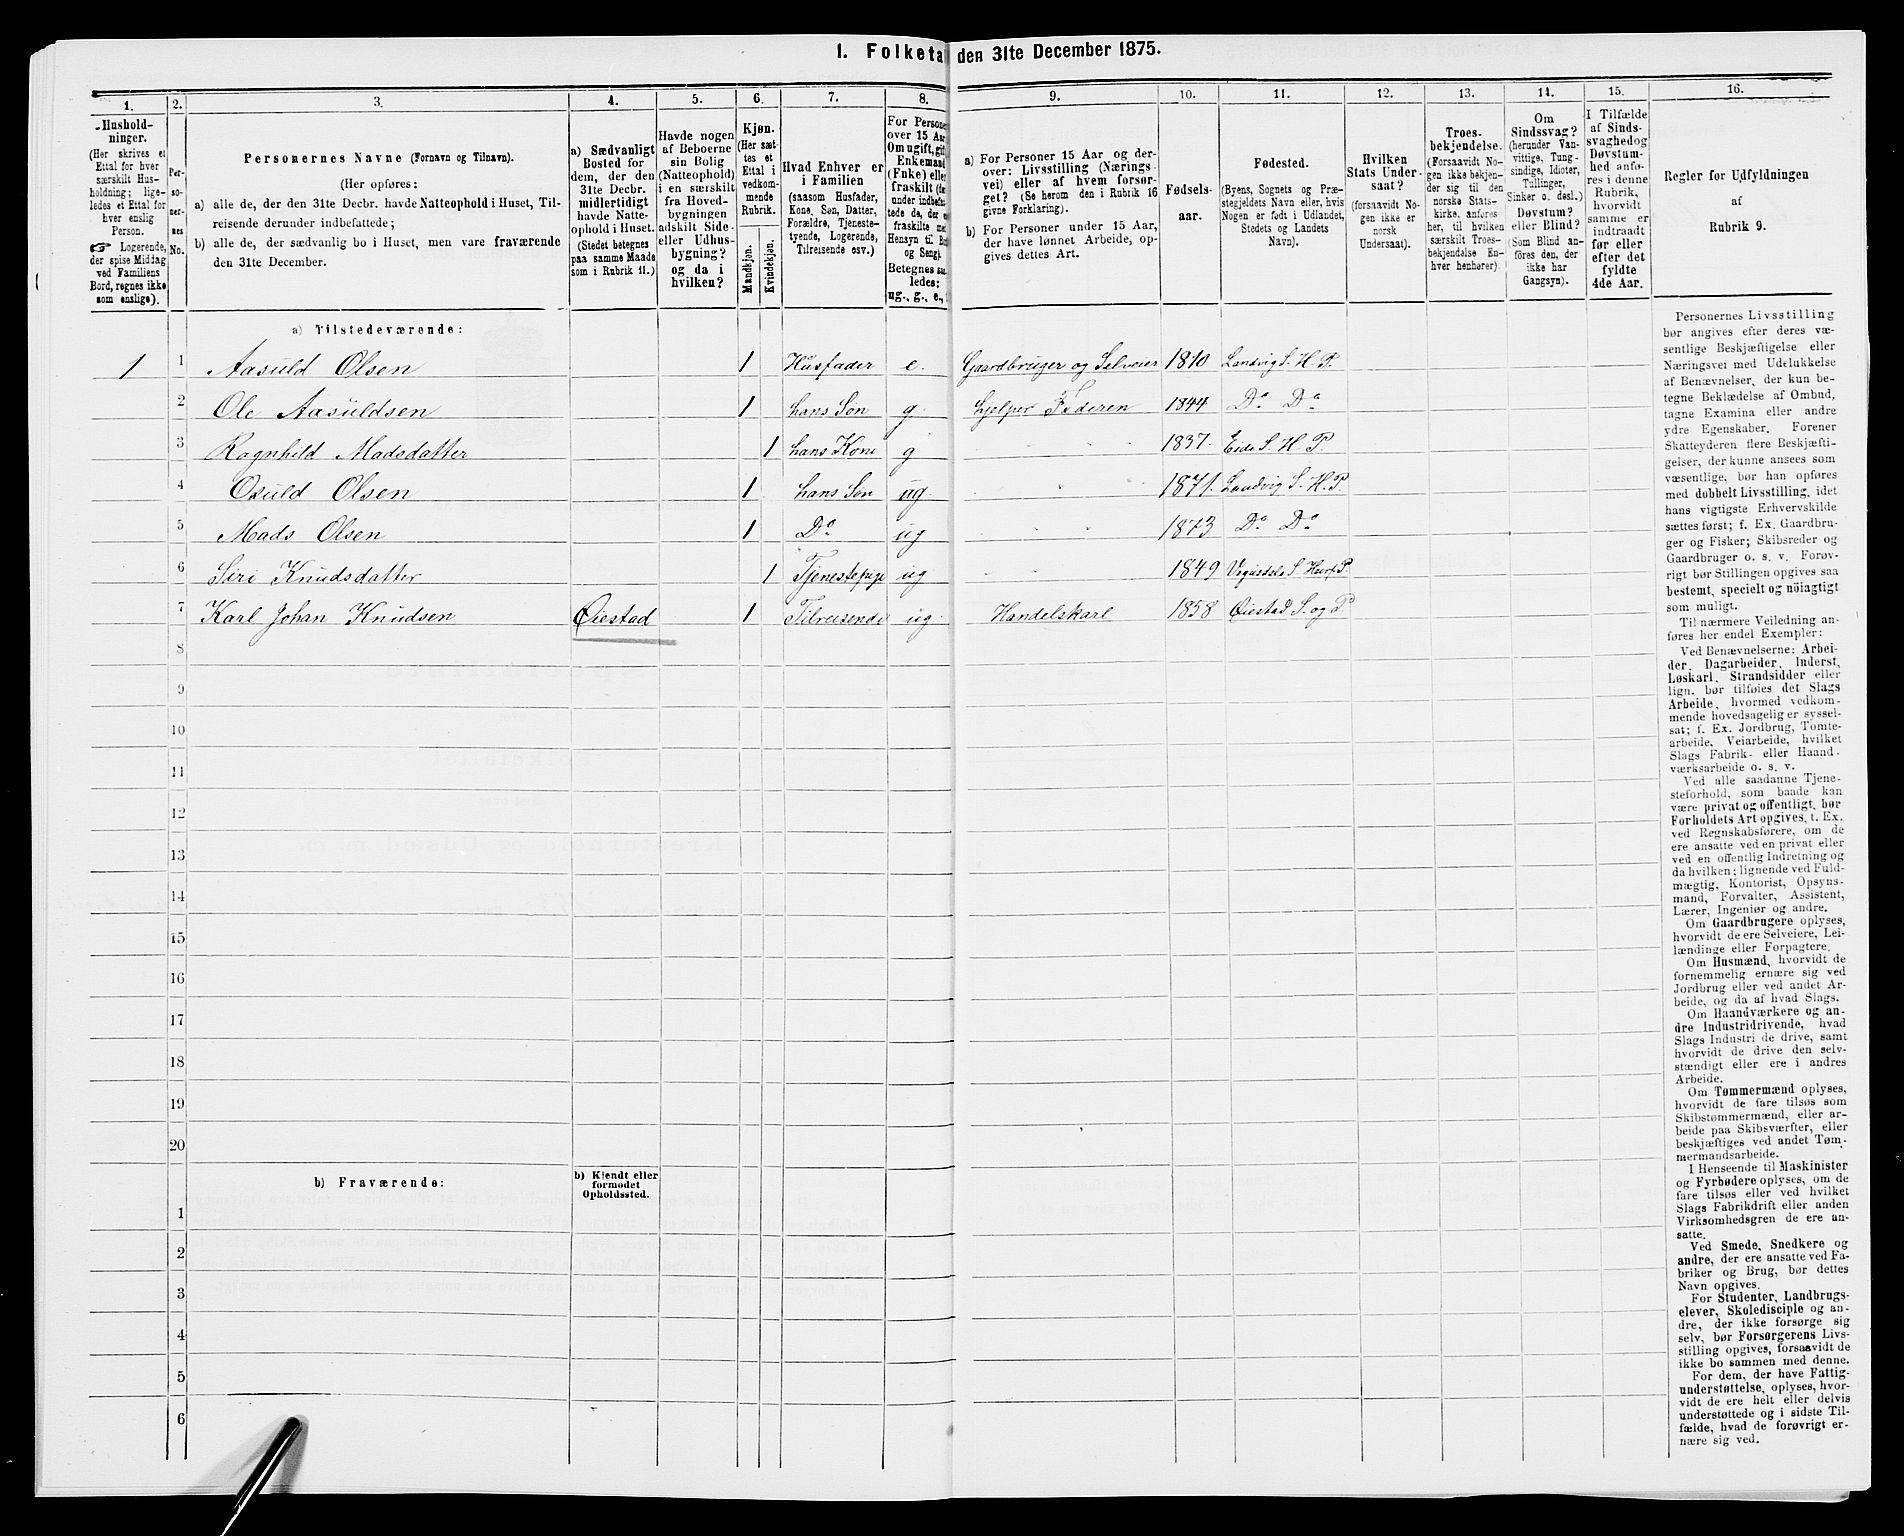 1. Folketa den 31te December 1875.
1. 2. 3. 4. 5. 6. 7. 8. 9. 10. 11. 12. 13. 14. 15. 16.
Hushold-
ninger.
(Her skrives et
Ettal for hver
særskilt Hus-
holdning; lige-
ledes et Ettal for
hver enslig
Person.
☞ Logerende,
der spise Middag
ved Familiens
Bord, regnes ikke
som enslige).
Per-
so-
ner-
nes
No.
Personernes Navne (Fornavn og Tilnavn).
(Her opføres:
a) alle de, der den 31te Decbr. havde Natteophold i Huset, Til-
reisende derunder indbefattede;
b) alle de, der sædvanlig bo i Huset, men vare fraværende
den 31te December.
a) Sædvanligt
Bosted for
dem, der den
31te Decbr.
midlertidigt
havde Natte-
ophold i Huset.
(Stedet betegnes
paa samme Maade
som i Rubrik 11.)
Havde nogen
af Beboerne
sin Bolig
(Natteophold)
i en særskilt
fra Hoved-
bygningen
adskilt Side-
eller Udhus-
bygning?
og da i
hvilken?
Kjøn.
(Her sæt-
tes et
Ettal i
vedkom-
mende
Rubrik.
Mandkjøn.
Kvindekjøn.
Hvad Enhver er
i Familien
(saasom Husfader,
Kone, Søn, Datter,
Forældre, Tjeneste-
tyende, Logerende,
Tilreisende osv.)
For Persone
over 15 Aar
Om ugift, gif
Enkemand
(Enke) elle
fraskilt
under indbefat
tede de, der e
fraskilte me
Hensyn til
og Seng).
Betegnes
ledes;
ug., g., e.,
a) For Personer 15 Aar og der-
over: Livsstilling (Nærings-
vei) eller af hvem forsør-
get? (Se herom den i Rubrik 16
givne Forklaring).
b) For Personer under 15 Aar,
der have lønnet Arbeide, op-
gives dettes Art.
Fødsels-
aar.
Fødested.
(Byens, Sognets og Præ-
stegjeldets Navn eller, hvis
Nogen er født i Udlandet,
Stedets og Landets
Navn).
Hvilken
Stats Under-
saat?
(forsaavidt No-
gen ikke er
norsk
Undersaat).
Troes-
bekjendelse.
(Forsaavidt No-
gen ikke bekjen-
der sig til den
norske Stats-
kirke, anføres
her, til hvilken
særskilt Troes-
bekjendelse En-
hver henhører).
Om
Sindssvag?
(herunder Van-
vittige, Tung-
sindige, Idioter,
Tullinger,
Sinker o. desl.)
Døvstum?
eller Blind?
(Som Blind an-
føres den, der
ikke har
Gangsyn).
I Tilfælde
af Sinds-
svaghed og
Døvstum-
hed anfø-
res i denne
Rubrik,
hvorvidt
samme er
indtraadt
før eller
efter det
fyldte
4de Aar.
Regler for Udfyldningen
af
Rubrik 9.
a) Tilstedeværende:
1 1 Aasuld Olsen 1 Husfader e. Gaardbruger og Selveier 1810 Landvig S. H. P.
2 Ole Aasuldsen 1 hans Søn g. hjelper Faderen 1844 Do Do
3 Ragnhild Madsdatter 1 hans Kone g 1837. Eide S. H. P.
4 Osuld Olsen 1 hans Søn ug. 1871. Landvig S. H. P.
5 Mads Olsen 1 Do ug 1873 Do Do
6 Siri Knudsdatter 1 Tjenestepige ug 1849 S. P.
7 Karl Johan Knudsen Øiestad 1 Tilreisende ug. Handelskarl 1858 Øiestad S. og P
8
9
10
11
12
13
14
15
16
17
18
19
20
b) Fraværende:
b) Kjendt eller
formodet
Opholdssted.
1
2
3
4
5
6
Personernes Livsstilling
bør angives efter deres væ-
sentlige Beskjæftigelse eller
Næringsvei med Udelukkelse
af Benævnelser, der kun be-
tegne Beklædelse af Ombud,
tagne Examina eller andre
ydre Egenskaber. Forener
Skatteyderen flere Beskjæfti-
gelser, der kunne ansees som
væsentlige, bør han opføres
med dobbelt Livsstilling, idet
hans vigtigste Erhvervskilde
sættes først; f. Ex. Gaardbru-
ger og Fisker; Skibsreder og
Gaardbruger o. s. v. Forøv-
rigt bør Stillingen opgives saa
bestemt, specielt og nöiagtigt
som muligt.
Til nærmere Veiledning an-
føres her endel Exempler:
Ved Benævnelserne: Arbei-
der, Dagarbeider, Inderst,
Løskarl, Strandsidder eller
lign. bør tilføies det Slags
Arbeide, hvormed vedkom-
mende hovedsagelig er syssel-
sat; f. Ex. Jordbrug, Tomte-
arbeide, Veiarbeide, hvilket
Slags Fabrik- eller Haand-
værksarbeide o. s. v.
Ved alle saadanne Tjene-
steforhold, som baade kan
være privat og offentligt, bør
Forholdets Art opgives, t. Ex.
ved Regnskabsførere, om de
ere ansatte ved en privat eller
ved en offentlig Indretning og
da hvilken; lignende ved Fuld-
mægtig, Kontorist, Opsyns-
mand, Forvalter, Assistent,
Lærer, Ingeniør og andre.
Om Gaardbrugere oplyses,
hvorvidt de ere Selveiere, Lei-
lændinge eller Forpagtere.
Om Husmænd, hvorvidt de
fornemmelig ernære sig ved
Jordbrug eller ved andet Ar-
beide, og da af hvad Slags.
Om Haandværkere og an-
dre Industridrivende, hvad
Slags Industri de drive, samt
hvorvidt de drive den selv-
stændigt eller ere i andres
Arbeide.
Om Tømmermænd oplyses,
hvorvidt de fare tilsøs som
Skibstømmermænd, eller ar-
beide paa Skibsværfter, eller
beskjæftiges ved andet Tøm-
mermandsarbeide.
I Henseende til Maskinister
og Fyrbødere oplyses, om de
fare tilsøs eller ved hvilket
Slags Fabrikdrift eller anden
Virksomhedsgren de ere an-
satte.
Ved Smede, Snedkere og
andre, der ere ansatte ved Fa-
briker og Brug, bør dettes
Navn opgives.
For Studenter, Landbrugs-
elever, Skoledisciple og an-
dre, der ikke forsørge sig
selv, bør Forsørgerens Livs-
stilling opgives, forsaavidt de
ikke bo sammen med denne.
For dem, der have Fattig-
understøttelse, oplyses, hvor-
vidt de ere helt eller delvis
understøttede og i sidste Til-
fælde, hvad de forøvrigt er-
nære sig ved.